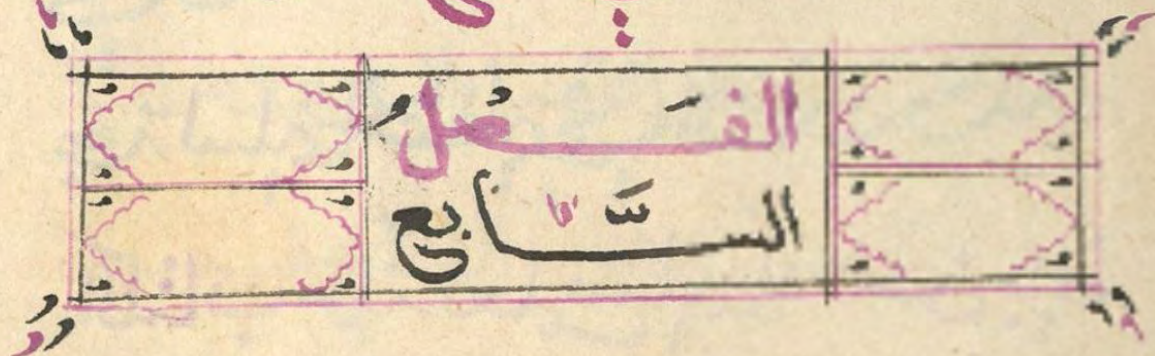 الفَصْلُ
السَّابِع